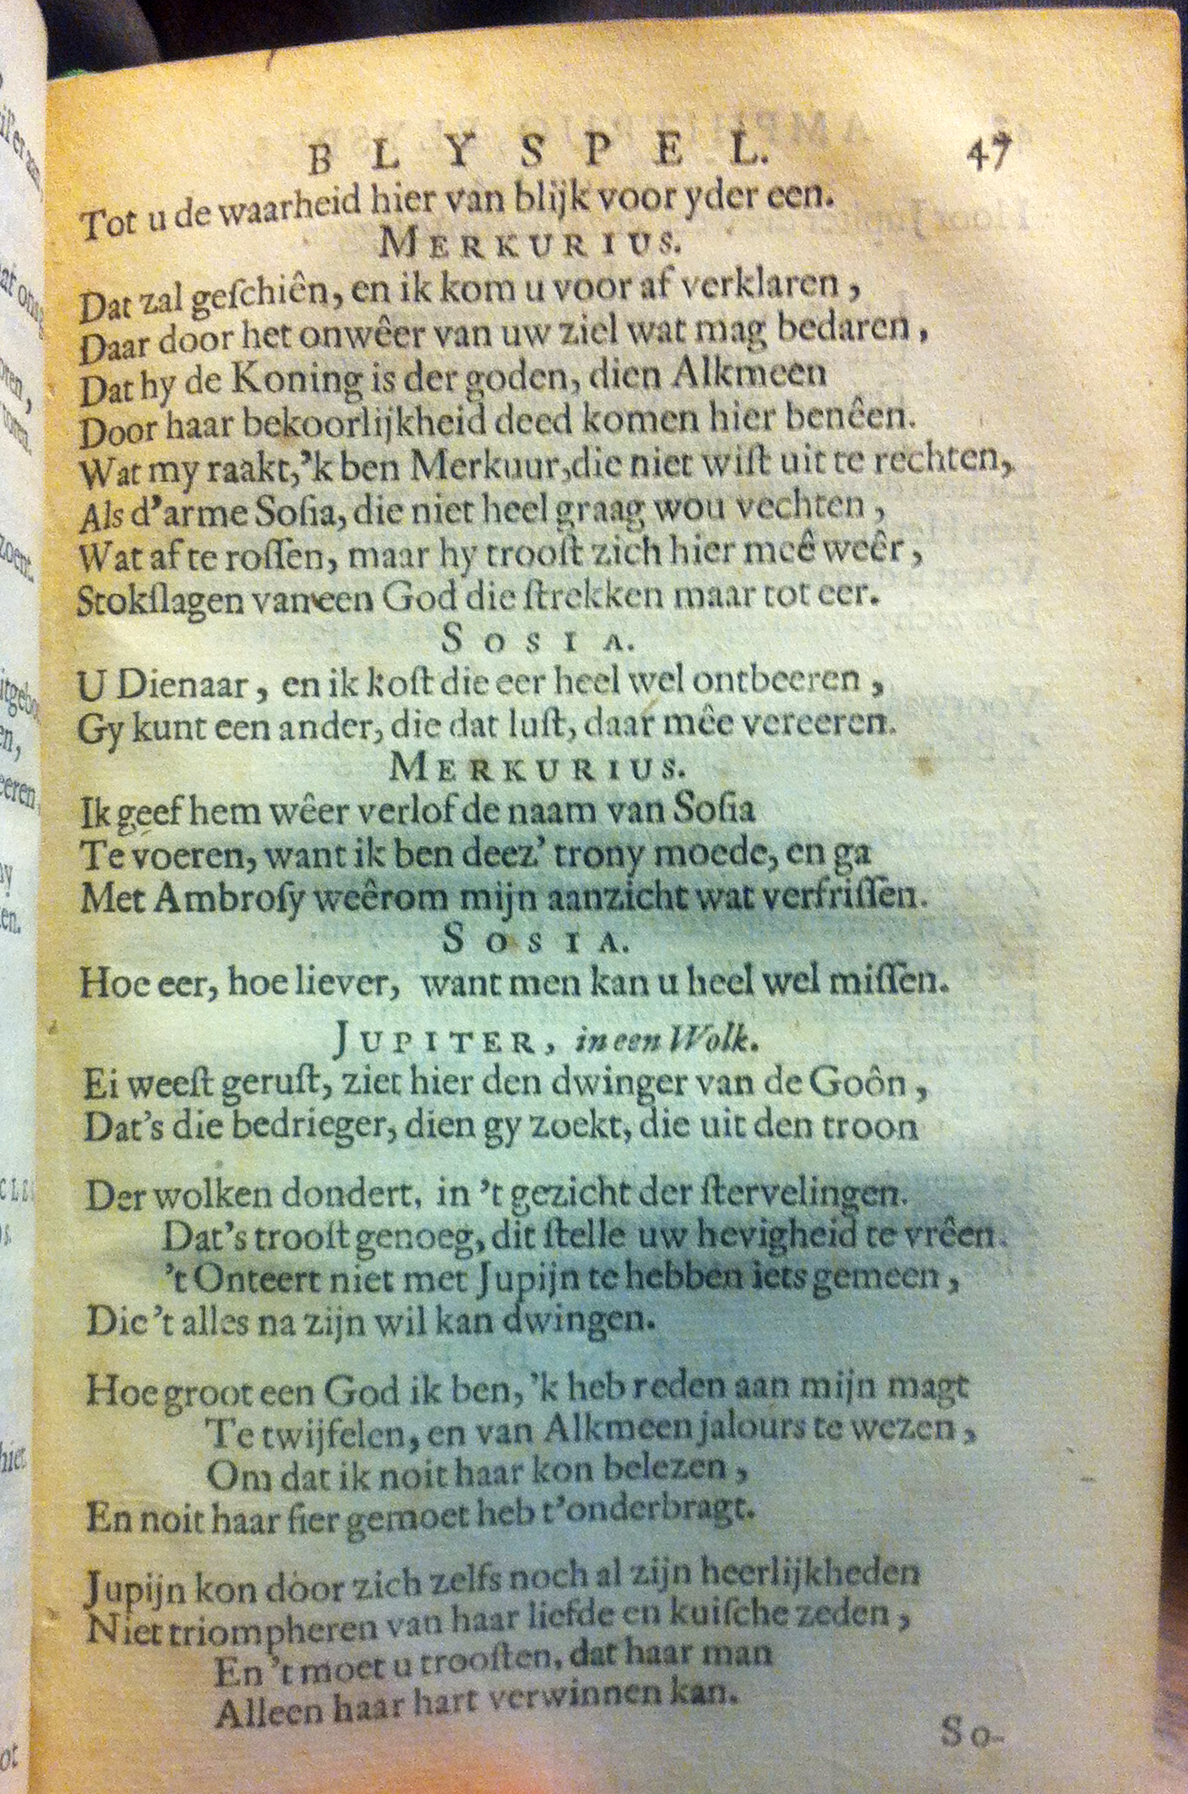 BLYSPEL. 47
Tot u de waarheid hier van blijk voor yder een.
MERKURIUS.
Dat zal geſchiên, en ik kom u voor af verklaren,
Daar door het onwêer van uw ziel wat mag bedaren,
Dat hy de Koning is der goden, dien Alkmeen
Door haar bekoorlijkheid deed komen hier benêen.
Wat my raakt,'k ben Merkuur,die niet wiſt uit te rechten,
Als d'arme Soſia, die niet heel graag wou vechten,
Wat af te roſſen, maar hy trooſt zich hier meê weêr,
Stokſlagen van een God die ſtrekken maar tot eer.
SOSIA.
U Dienaar, en ik koſt die eer heel wel ontbeeren,
Gy kunt een ander, die dat luſt, daar mêe vereeren.
MERKURIUS.
Ik geef hem wêer verlof de naam van Soſia
Te voeren, want ik ben deez' trony moede, en ga
Met Ambroſy weêrom mijn aanzicht wat verfriſſen.
SOSIA.
Hoe eer, hoe liever, want men kan u heel wel miſſen.
JUPITER, in een Wolk.
Ei weeſt geruſt, ziet hier den dwinger van de Goôn,
Dat's die bedrieger, dien gy zoekt, die uit den troon
Der wolken dondert, in 't gezicht der ſtervelingen.
Dat's trooſt genoeg, dit ſtelle uw hevigheid te vrêen.
't Onteert niet met Jupijn te hebben iets gemeen,
Die 't alles na zijn wil kan dwingen.
Hoe groot een God ik ben, 'k heb reden aan mijn magt
Te twijfelen, en van Alkmeen jalours te wezen,
Om dat ik noit haar kon belezen,
En noit haar fier gemoet heb t'onderbragt.
Jupijn kon door zich zelfs noch al zijn heerlijkheden
Niet triompheren van haar liefde en kuiſche zeden,
En 't moet u trooſten, dat haar man
Alleen haar hart verwinnen kan.
So-